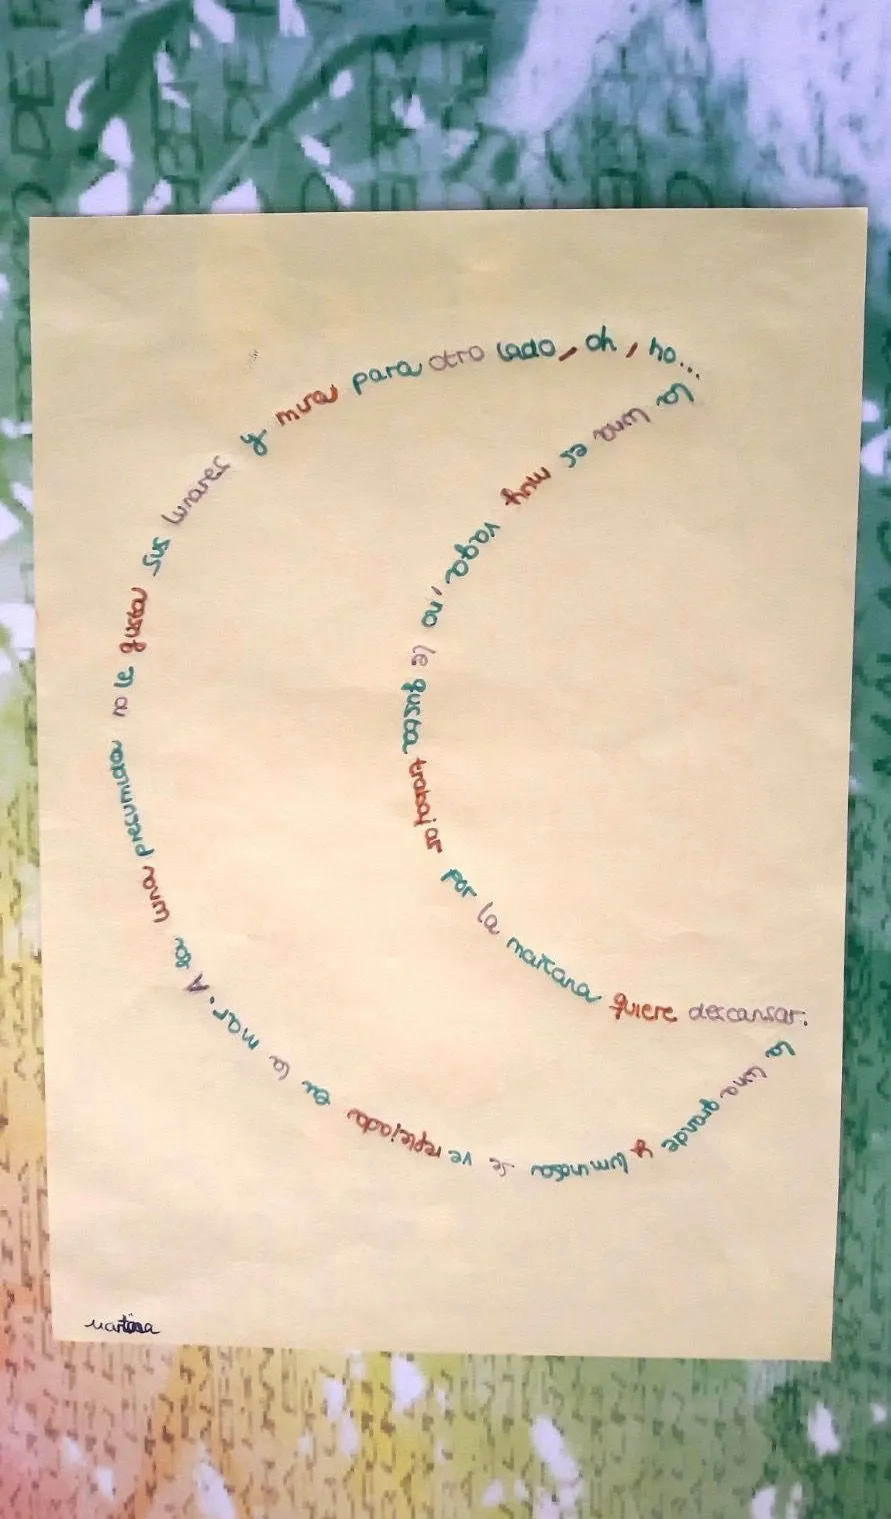 la luna es muy vaga, no le gusta trabajar por la mañana quiere descansar.
la luna grande y luminosa se ve reflejada en la mar. A la luna presumida no le gustan sus lunares y mira para otro lado, oh, no...
Martina